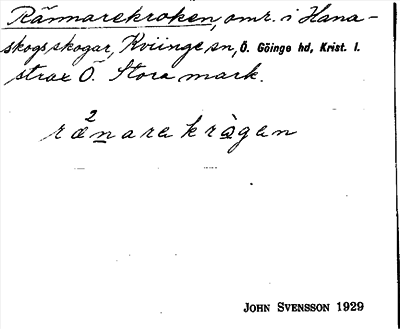 Rännarekroken, omr. i Hana-
skogs skogar, Kviinge sn, Ö. Göinge hd, Krist. l.
strax Ö. Stora mark.
ræ²nare kràgen
JOHN SVENSSON 1929